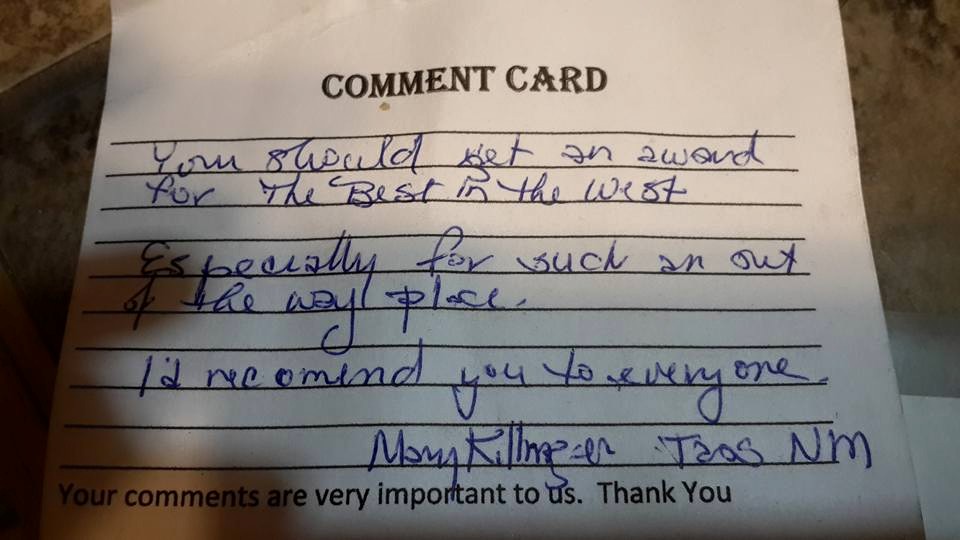 COMMENT CARD
You should get an award
for The Best in the West
Especially for such an out
of the way place.
I'd recomend you to everyone.
Mary Taos NM
Your comments are very important to us. Thank You